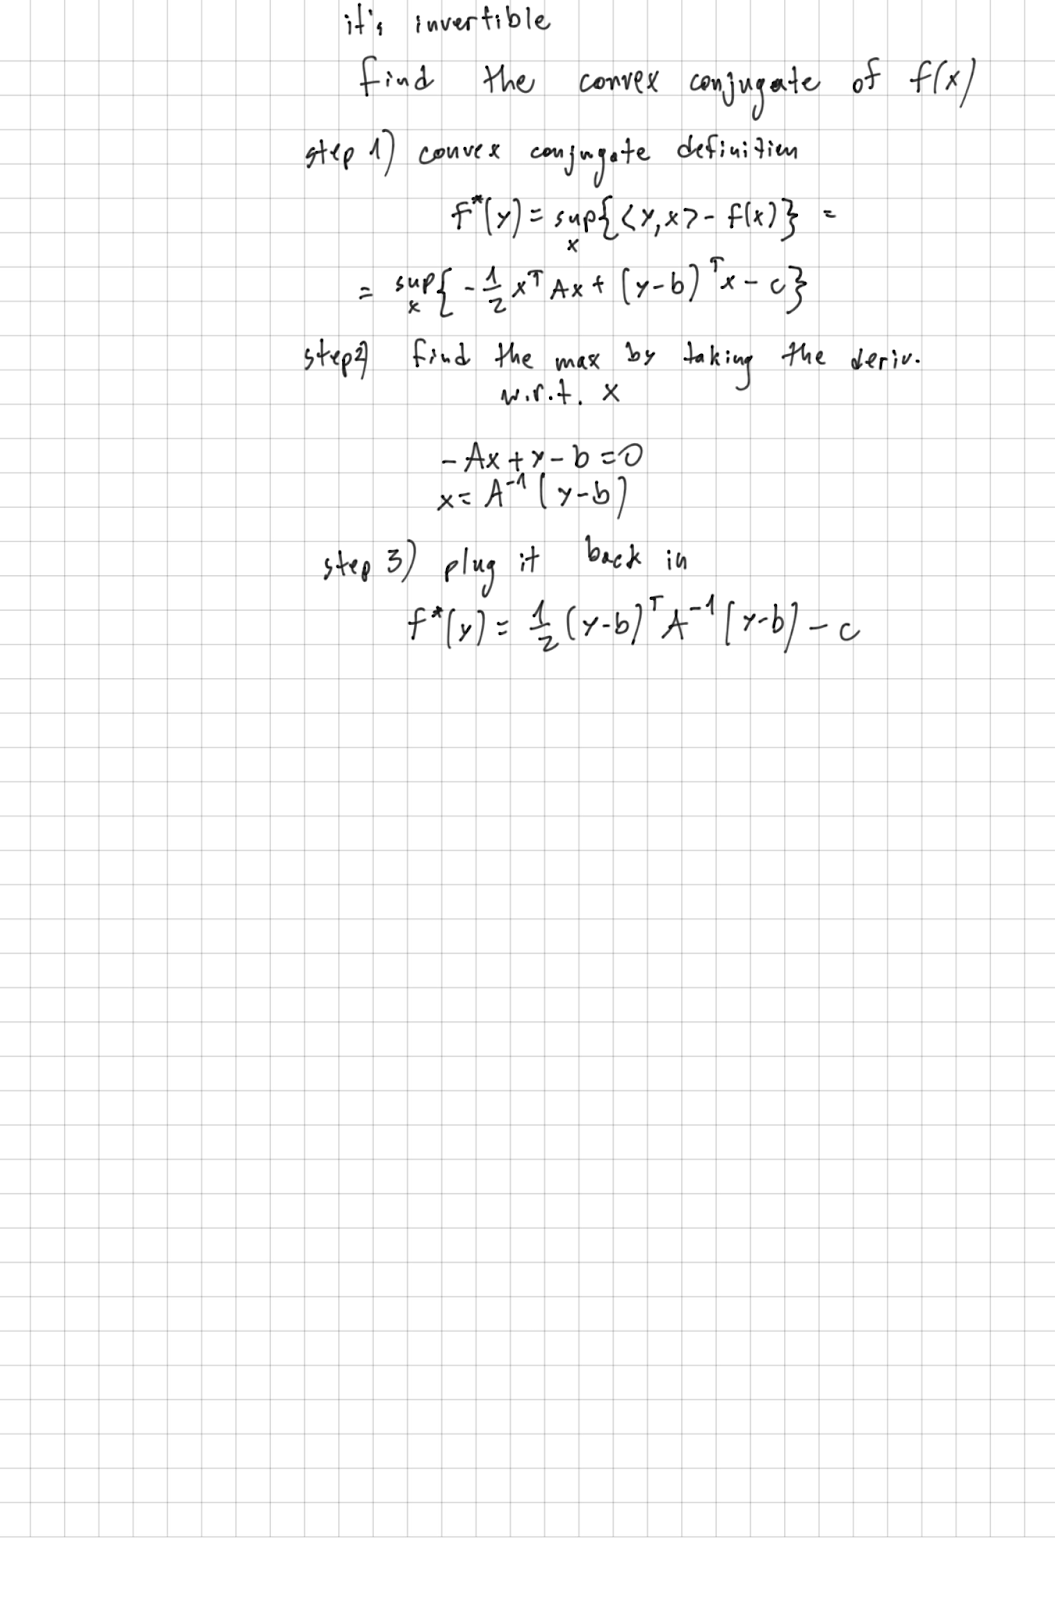 it's invertible
find the convex conjugate of f(x)
step 1) convex conjugate definition
f*(y) = sup{<y,x> - f(x)} =
x
= sup{ -1/2 xᵀAx + (y-b)ᵀx - c}
x
step2) find the max by taking the deriv.
w.r.t. x
-Ax + y - b = 0
x = A⁻¹(y-b)
step 3) plug it back in
f*(y) = 1/2 (y-b)ᵀA⁻¹(y-b) - c